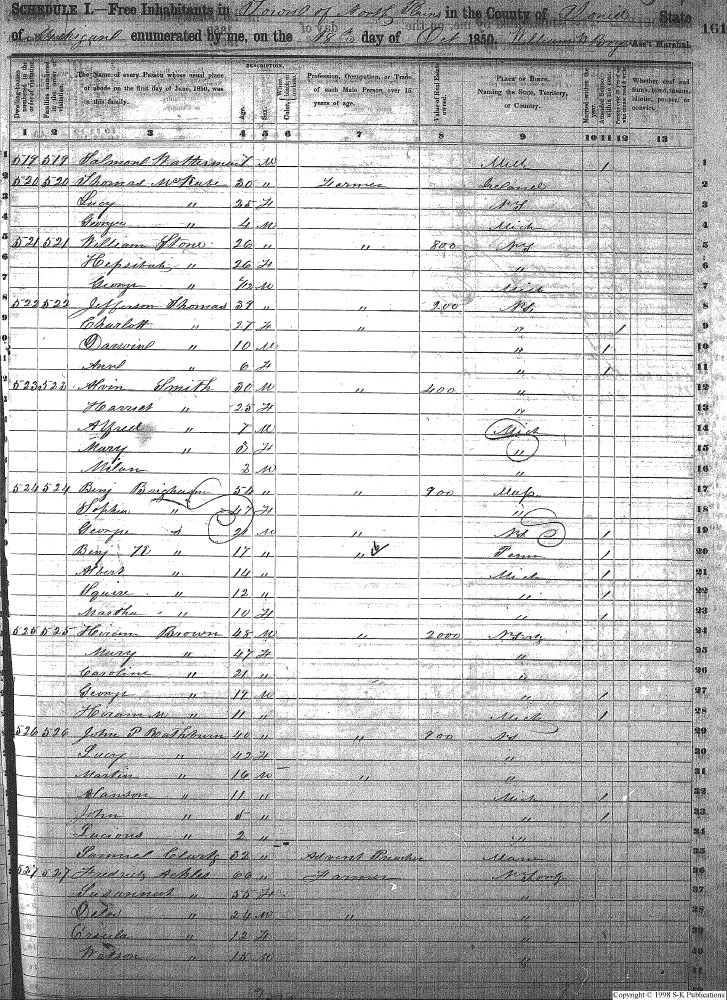 SCHEDULE I.—Free Inhabitants in Town of North Plains in the County of Ionia State
of Michigan enumerated by me, on the 18th day of Oct 1850. William Ass't Marshal.
161
Dwelling-houses numbered in the order of visitation.
Families numbered in the order of visitation.
The Name of every Person whose usual place of abode on the first day of June, 1850, was in this family.
DESCRIPTION.
Age.
Sex.
Color,
Profession, Occupation, or Trade of each Male Person over 15 years of age.
Value of Real Estate owned.
PLACE OF BIRTH.
Naming the State, Territory, or Country.
Married within the year.
Whether deaf and dumb, blind, insane, idiotic, pauper, or convict.
1 2 3 4 5 6 7 8 9 10 11 12 13
1 519 519 Salmond Waterman 7 M Mich / 1
2 520 520 Thomas 30 " Farmer Ireland 2
3 Lucy " 25 F NY 3
4 George " 4 M Mich 4
5 521 521 William Stone 26 " " 800 NY 5
6 Hepsibah " 26 F " 6
7 George " /12 M Mich 7
8 522 522 Jefferson Thomas 39 " " 200 NY 8
9 Charlott " 27 F " " / 9
10 Darwin " 10 M " / 10
11 Ann " 6 F " / 11
12 523 523 Alvin Smith 30 M " 400 " 12
13 Harriet " 25 F " 13
14 Alfred " 7 M Mich 14
15 Mary " 5 F " 15
16 Milan 2 M " 16
17 524 524 Benj Brigham 54 " " 900 Mass 17
18 Sophia " 47 F " 18
19 George " 21 M " NY / 19
20 Benj " 17 " " Penn / 20
21 Albert " 14 " Mich / 21
22 Squire " 12 " " / 22
23 Martha " 10 F " / 23
24 525 525 Hiram Brown 48 M " 2000 N York 24
25 Mary " 47 F " 25
26 Caroline " 21 " " 26
27 George " 19 M " / 27
28 Hiram M " 11 " Mich / 28
29 526 526 John P Rathburn 40 " " 900 NY 29
30 Lucy " 42 F " 30
31 Martin " 16 M " " 31
32 Hanson " 11 " Mich / 32
33 John " 5 " " / 33
34 Lucious " 2 " " 34
35 Samuel Clark 32 " Advent Preacher Maine 35
36 527 527 Fredrick Ackles 60 " Farmer N York 36
37 Susannah " 55 F " 37
38 " 24 M " " 38
39 Ursula " 12 F " 39
40 Watson " 15 M " 40
41 41
Copyright © 1998 S-K Publications